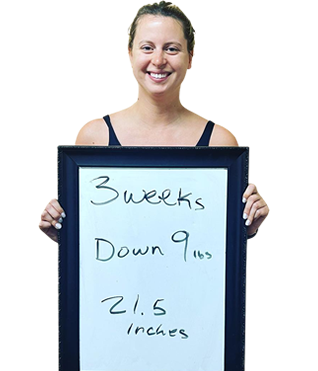 3 weeks
Down 9 lbs
21.5
inches